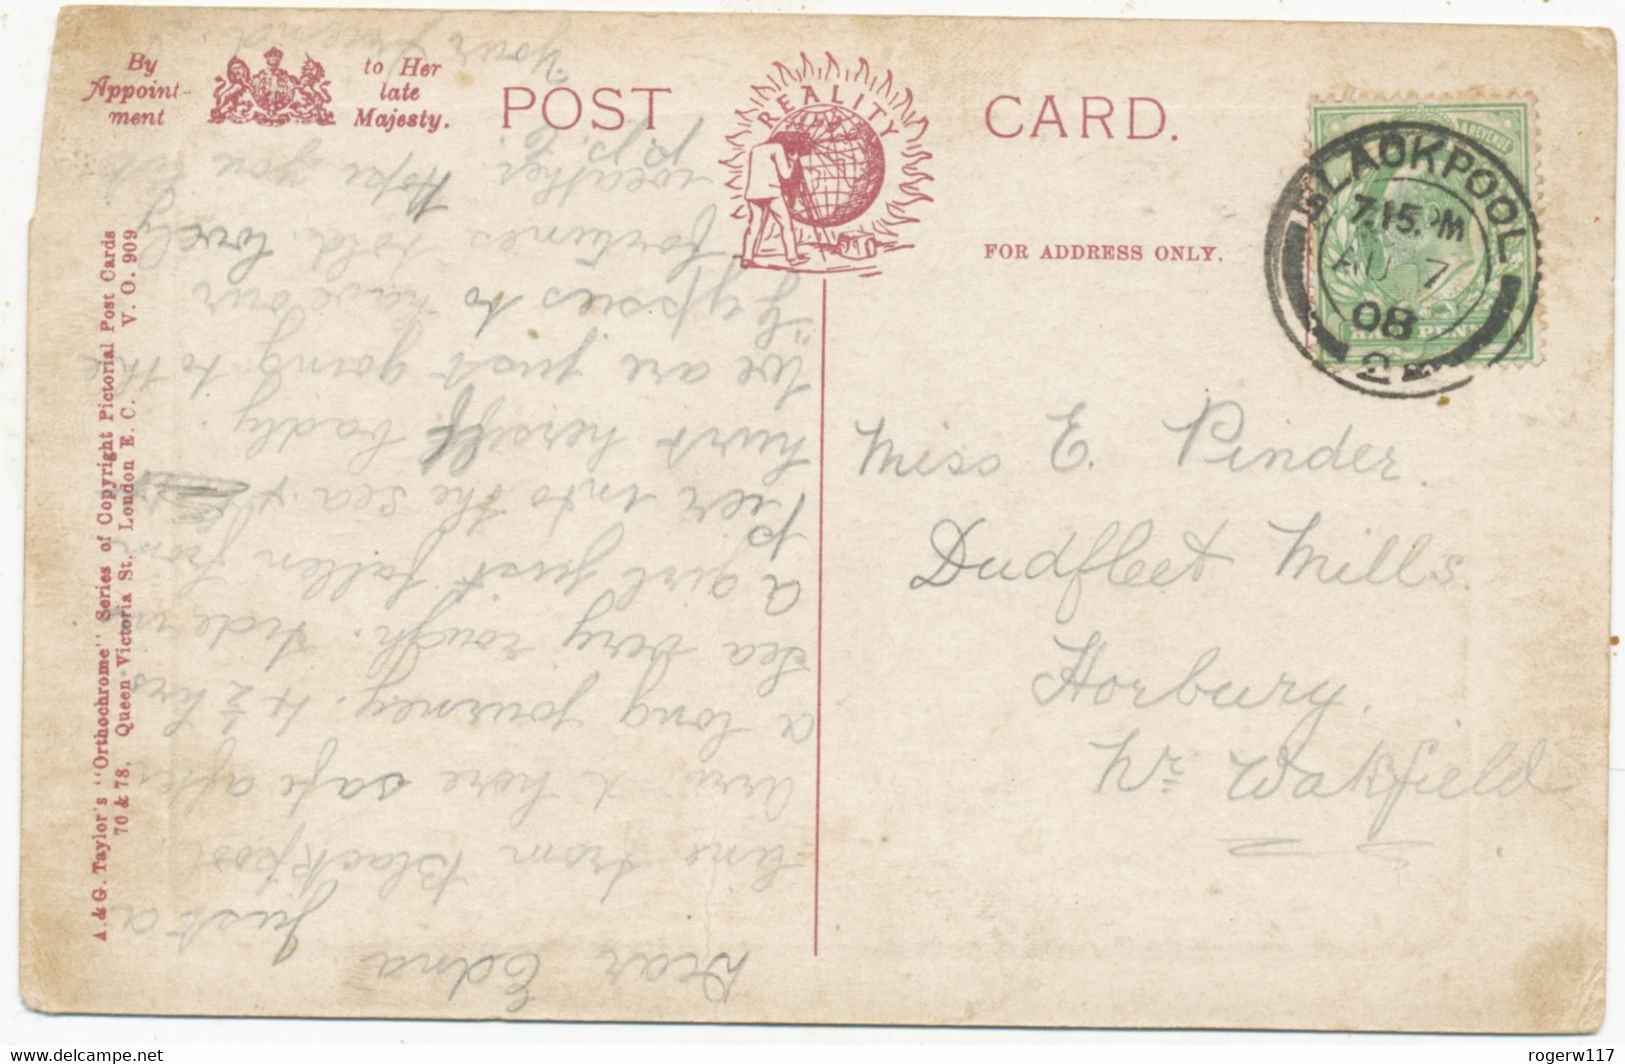 By
Appoint-
ment
to Her
late
Majesty.
POST CARD.
REALITY
FOR ADDRESS ONLY.
& REVENUE
HALFPENNY
BLACKPOOL
7.15.PM
AU 7
08
2
Miss E. Pinder.
Dudfleet Mills.
Horbury.
Nr Wakefield
Dear Edna
Just a
line from Blackpool.
here safe after
a long journey. 4 1/2 hrs
Sea very rough. tide in
a girl just fallen from
pier into the sea &
hurt herself badly.
We are just going to the
"gypsies to have our
fortunes told. lovely
weather. Hope you
R.S.
your friend
A. & G. Taylor's "Orthochrome" Series of Copyright Pictorial Post Cards
70 & 78, Queen Victoria St. London E. C. V. O. 909
rogerw117